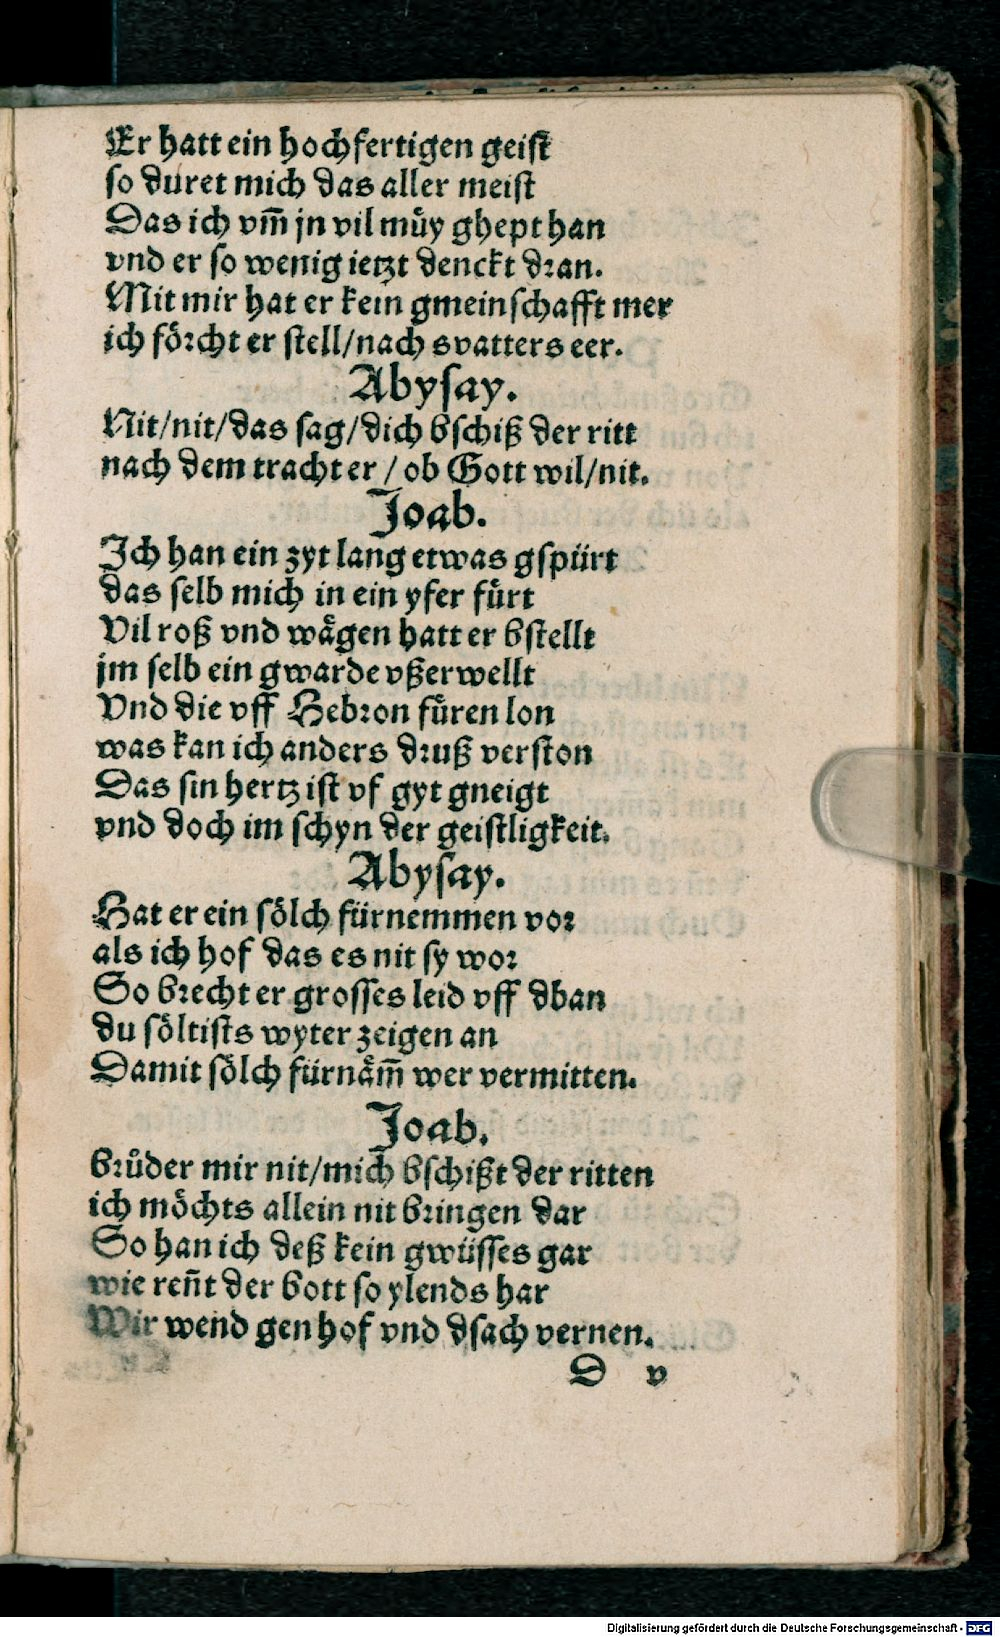 Er hatt ein hochfertigen geist
so duret mich das aller meist
Das ich vm̄ jn vil muͤy ghept han
vnd er so wenig ietzt denckt dran.
Mit mir hat er kein gmeinschafft mer
ich foͤrcht er stell/nach svatters eer.
Abysay.
Nit/nit/das sag/dich bschiß der ritt
nach dem tracht er / ob Gott wil/nit.
Joab.
Ich han ein zyt lang etwas gspürt
das selb mich in ein yfer fuͤrt
Vil roß vnd waͤgen hatt er bstellt
jm selb ein gwarde vßerwellt
Vnd die vff Hebron fuͤren lon
was kan ich anders druß verston
Das sin hertz ist vf gyt gneigt
vnd doch im schyn der geistligkeit.
Abysay.
Hat er ein soͤlch fürnemmen vor
als ich hof das es nit sy wor
So brecht er grosses leid vff dban
du soͤltists wyter zeigen an
Damit soͤlch fürnaͤm̄ wer vermitten.
Joab.
Bruͦder mir nit/mich bschißt der ritten
ich moͤchts allein nit bringen dar
So han ich deß kein gwüsses gar
wie ren̄t der bott so ylends har
Wir wend gen hof vnd dsach vernen.
D v
Digitalisierung gefördert durch die Deutsche Forschungsgemeinschaft - DFG